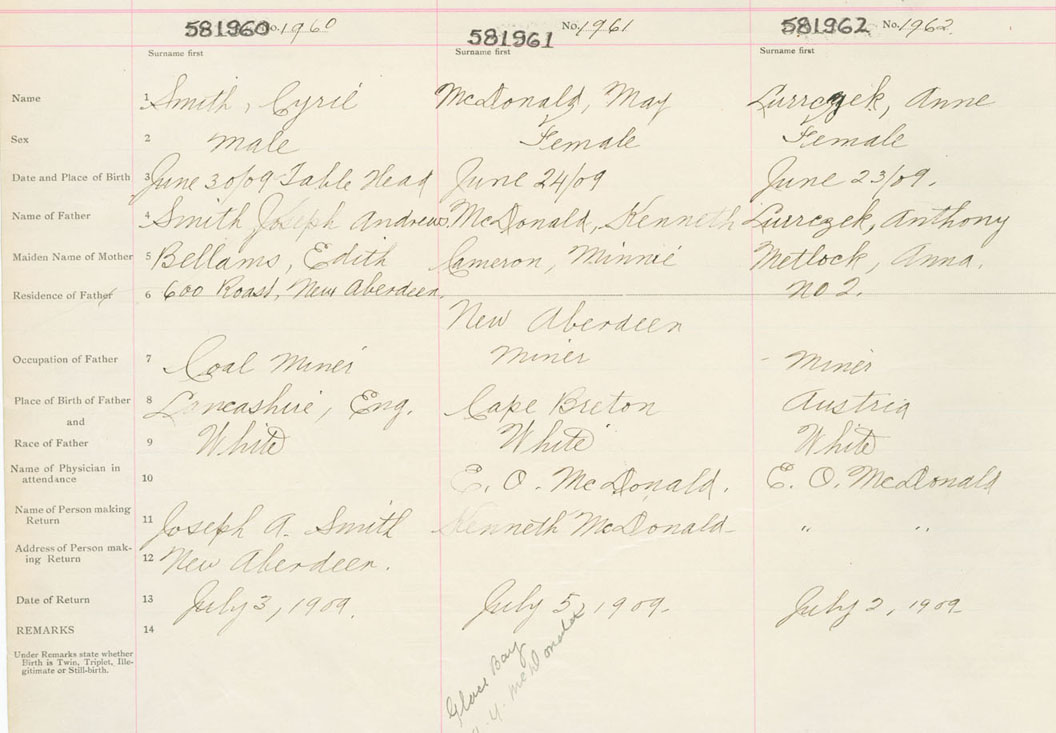 581960 No. 1960 581961 No. 1961 581962 No. 1962
Surname first Surname first Surname first
Name 1 Smith, Cyril McDonald, May Lurrczek, Anne
Sex 2 male Female Female
Date and Place of Birth 3 June 30/09 Table Head June 24/09 June 23/09.
Name of Father 4 Smith Joseph Andrews McDonald, Kenneth Lurrczek, Anthony
Maiden Name of Mother 5 Bellams, Edith Cameron, Minnie Metlock, Anna.
Residence of Father 6 600 New Aberdeen. New Aberdeen No 2.
Occupation of Father 7 Coal Miner Miner Miner
Place of Birth of Father 8 Lancashire, Eng. Cape Breton Austria
and
Race of Father 9 White White White
Name of Physician in
attendance 10 E. O. McDonald. E. O. McDonald
Name of Person making
Return 11 Joseph A. Smith Kenneth McDonald " "
Address of Person mak-
ing Return 12 New Aberdeen.
Date of Return 13 July 3, 1909. July 5, 1909. July 2, 1909
REMARKS 14
Under Remarks state whether
Birth is Twin, Triplet, Ille-
gitimate or Still-birth.
Glace Bay
McDonald